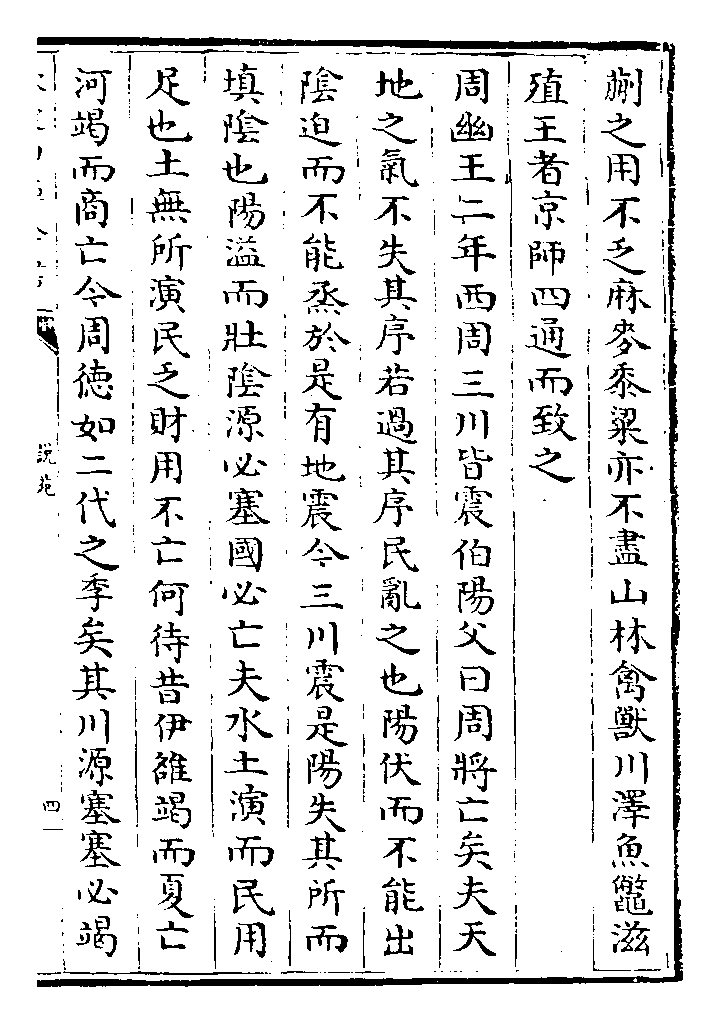 蒯之用不乏麻麥黍粱亦不盡山林禽獸川澤魚鼈滋
殖王者京師四通而致之
周幽王二年西周三川皆震伯陽父曰周將亡矣夫天
地之氣不失其序若過其序民亂之也陽伏而不能出
陰迫而不能烝於是有地震今三川震是陽失其所而
填陰也陽溢而壯陰源必塞國必亡夫水土演而民用
足也土無所演民乏財用不亡何待昔伊雒竭而夏亡
河竭而商亡今周德如二代之季矣其川源塞塞必竭
說苑
四